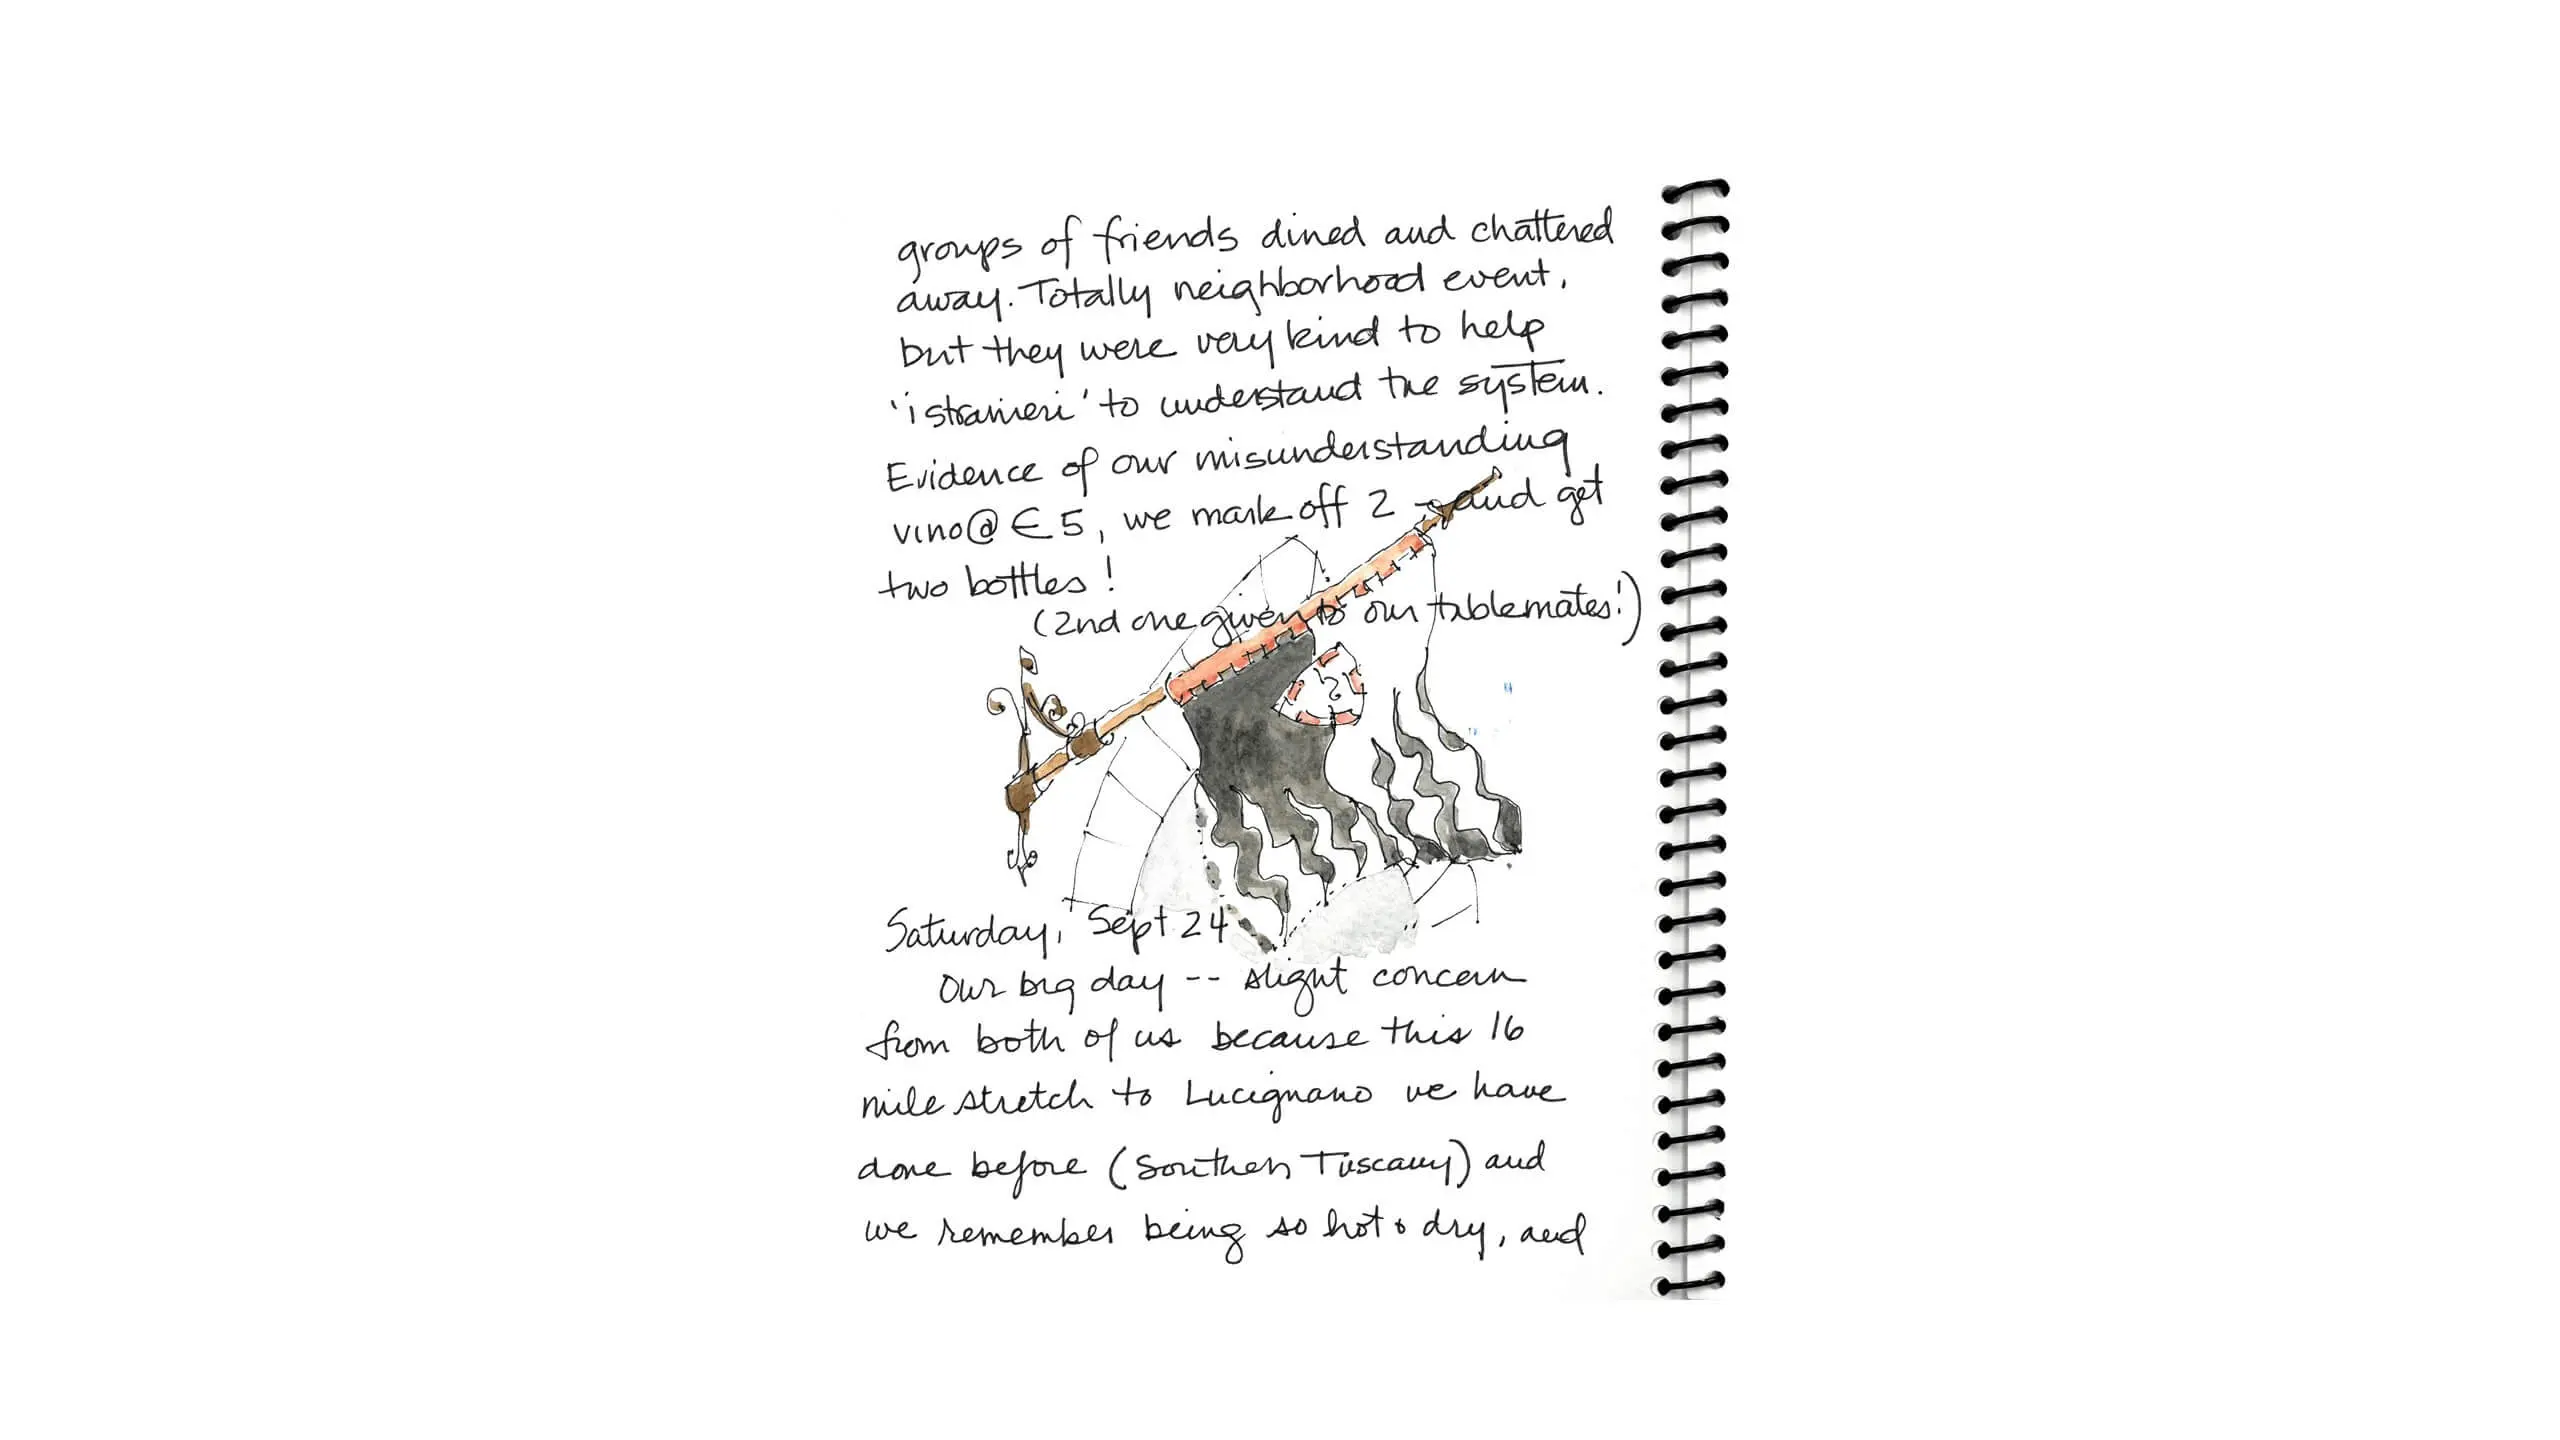 groups of friends dined and chattered
away. Totally neighborhood event,
but they were very kind to help
'i stranieri' to understand the system.
Evidence of our misunderstanding
vino @ € 5, we mark off 2 - and get
two bottles!
(2nd one given to our tablemates!)
Saturday, Sept 24
Our big day -- slight concern
from both of us because this 16
mile stretch to Lucignano we have
done before (Southern Tuscany) and
we remember being so hot & dry, and